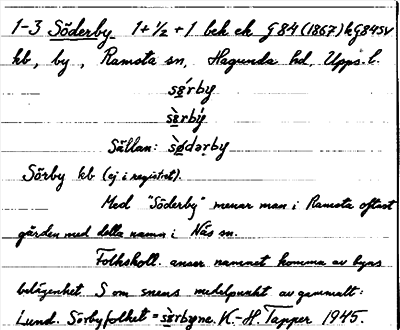 1-3 Söderby 1+½+1 bek ek G84 (1867) kG84SV
kb, by, Ramsta sn, Hagunda hd, Upps. l.
sø̀rby
sø̀rby
Sällan: sø̀dərby
Sörby kb (ej i registret).
Med "Söderby" menar man i Ramsta oftast
gården med detta namn i Näs sn.
Folkskoll. anser namnet komma av byns
belägenhet S om snens medelpunkt av gammalt:
Lund. Sörbyfolket = sørbyne. K.-H. Tapper 1945.